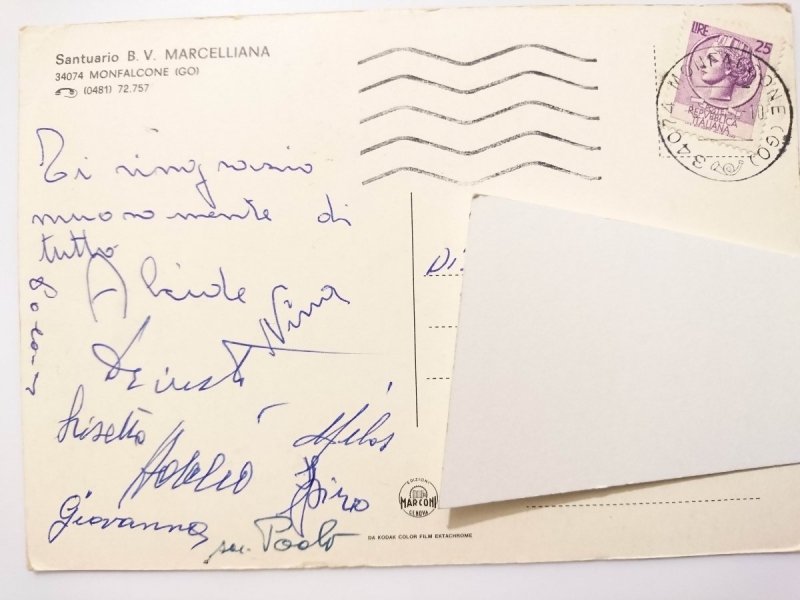 Santuario B. V. MARCELLIANA
34074 MONFALCONE (GO)
(0481) 72.757
LIRE 25
REPUBBLICA
ITALIANA
34074 MONFALCONE (GO)
Ti ringrazio
nuovamente di
tutto
Alcide
Nina
Lisetta
Milos
Giovanna
sac. Paolo
EDIZIONI
MARCONI
GENOVA
DA KODAK COLOR FILM EKTACHROME